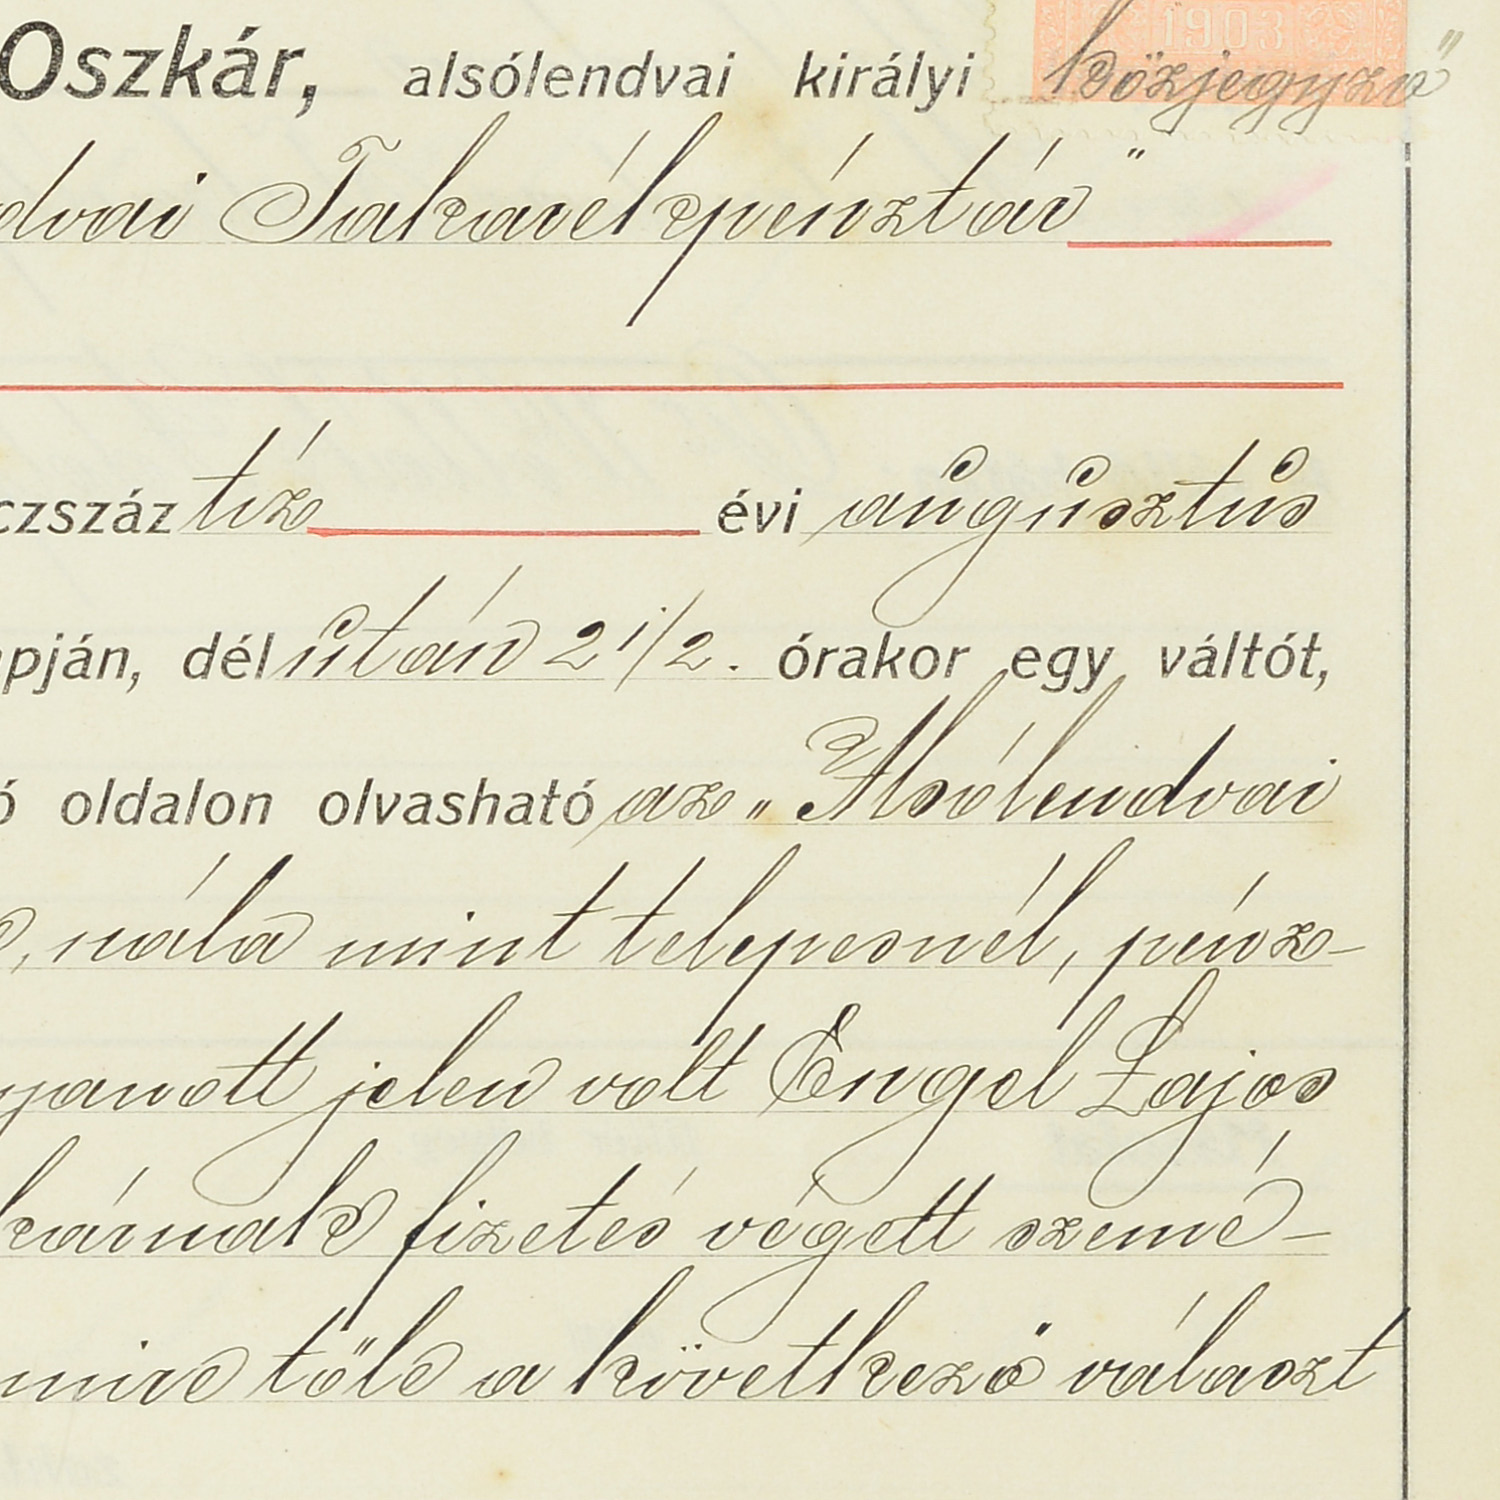 1903
Oszkár, alsólendvai királyi közjegyző"
dvai Takarékpénztár"
czszáz tíz évi augusztus
apján, délután 2 1/2. órakor egy váltót,
ó oldalon olvasható az „Alsólendvai
, nála mint telepesnél, pénz-
yanott jelen volt Engel Lajos
kárnak fizetés végett szemé-
mire tőle a következő választ